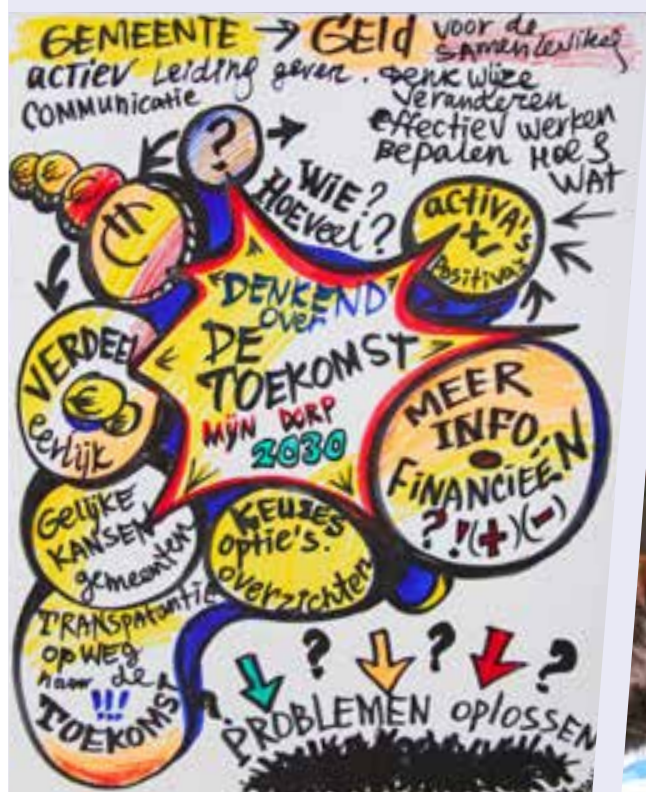 GEMEENTE → GELD voor de
SAMENLEVIKEG
ACTIEV Leiding geven. denkwijze
COMMUNICATIE
Veranderen
effectiev werken
BEPALEN HOE &
WAT
?
WIE?
HOEVEEL?
ACTIVA'S
+/
Positiva's
€
DENKEND
over
DE
TOEKOMST
MIJN DORP
2030
VERDEEL
€
eerlijk
MEER
INFO
FINANCIEËN
?!(+)(-)
GELIJKE
KANSEN
gemeenten
KEUZES
optie's.
overzichten
TRANSPATANTIE
OP WEG
naar de
!!!
TOEKOMST
? ? ?
?
PROBLEMEN OPLOSSEN